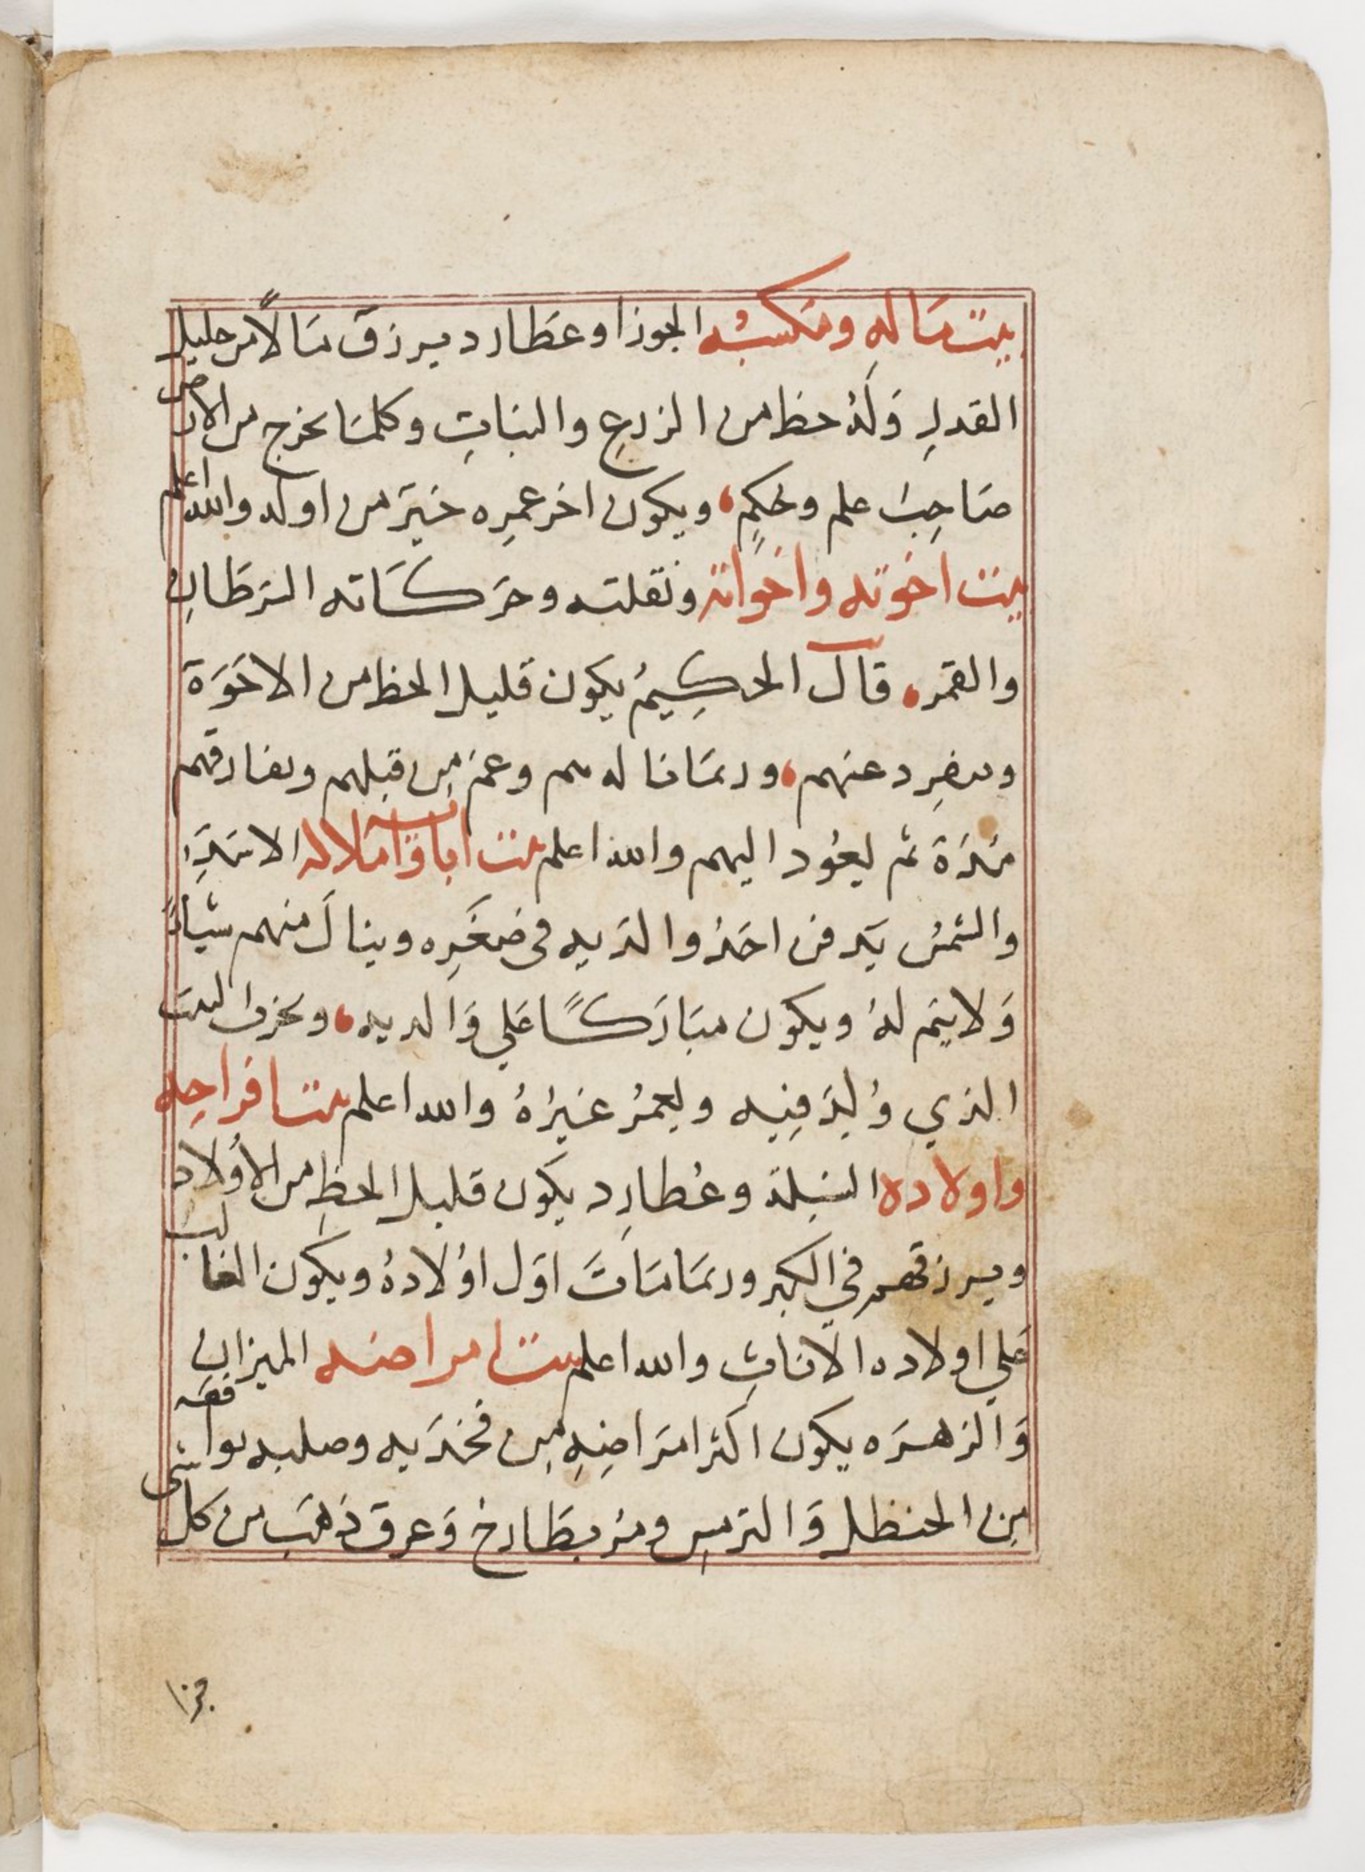 بيت مَاله ومَكسبُه الجوزا وعطَارد يرزق مَالًا من جليل
القدرِ وَلهُ حظ من الزرعِ والنباتِ وكلمَا يخرج من الارض
صَاحِبُ علم وحُكمٍ، ويكون اخر عمرِه خيرَ من اوله والله اعلم
بيت اخوته واخواته ونقلته وحرَكَاته السَرطَان
والقمر، قال الحكِيمُ يكون قليل الحظ من الاخوَة
وينفرِد عنهم، وربمَا ناله هم وغم مِن قبلهم ويفارقهم
مُدَة ثم يعُود اليهم والله اعلم بيت اباه واملاله الاسَدِ
والشمسُ يَدفن احَدُ والدَيه في صغَرِه وينالَ منهم شياءً
وَلا يتم لهُ ويكون مبَارَكًا عَلي وَالديه، ويخرب البيت
الذي وُلِدَ فِيه ويعمُر غيرُهُ والله اعلم بيت افراحِه
واولاده السُنبلة وعُطارِد يكون قليل الحظِ من الأَولاد
ويرزقهم في الكبر وربمَا مَاتَ اوَل اوُلادهُ ويكون الغالب
عَلي اولاده الاناثِ والله اعلم بيت امراضه الميزان
وَالزهرَه يكون اكثر امرَاضِهِ مِن فخدَيه وصلبه يوافقه
مِن الحنظل وَالترمسِ ومُر بطَارخ وَعرق ذهَب من كل شي
جزا